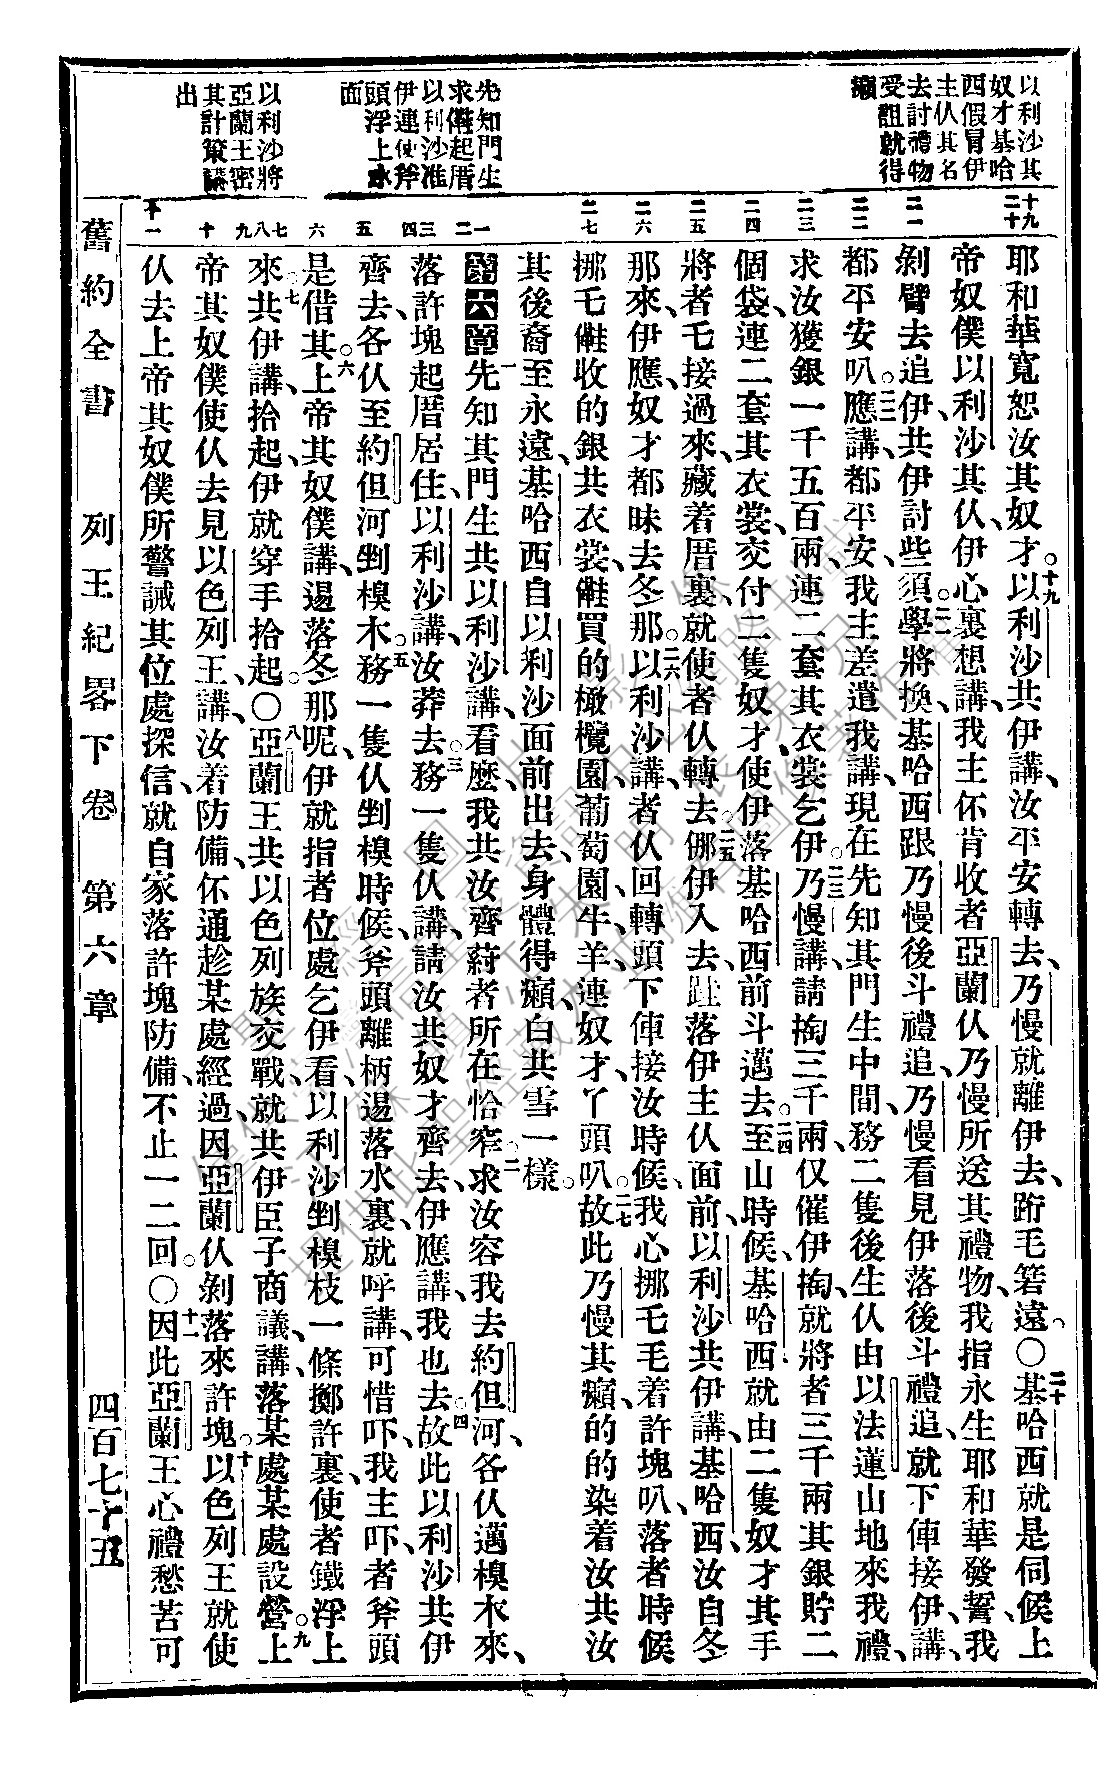 以利沙其
奴才基哈
西假冒伊
主仆其名
去討禮物
受詛就得
癩
先知門生
求僆起厝
以利沙准
伊連使斧
頭浮上水
面
以利沙將
亞蘭王密
其計策講
出
十九
二十
二一
二二
二三
二四
二五
二六
二七
一
二
三
四
五
六
七
八
九
十
十一
耶和華寬恕汝其奴才。十九以利沙共伊講、汝平安轉去、乃慢就離伊去、跨毛箬遠。〇二十基哈西就是伺候上
帝奴僕以利沙其仆、伊心裏想講、我主伓肯收者亞蘭仆乃慢所送其禮物、我指永生耶和華發誓、我
剝臂去追伊、共伊討些須。二一學將換基哈西跟乃慢後斗禮追、乃慢看見伊落後斗禮追、就下俥接伊講、
都平安叭。二二應講、都平安、我主差遣我講、現在先知其門生中間、務二隻後生仆由以法蓮山地來我禮、
求汝獲銀一千五百兩、連二套其衣裳乞伊。二三乃慢講、請掏三千兩、仅催伊掏、就將者三千兩其銀貯二
個袋、連二套其衣裳、交付二隻奴才、使伊落基哈西前斗邁去。二四至山時候、基哈西就由二隻奴才其手
將者乇接過來、藏着厝裏、就使者仆轉去。二五㑚伊入去、跬落伊主仆面前、以利沙共伊講、基哈西汝自冬
那來、伊應、奴才都昧去冬那。二六以利沙講、者仆回轉頭下俥接汝時候、我心挪毛毛着許塊叭、落者時候
挪乇僆收的銀共衣裳、僆買的橄欖園、葡萄園、牛、羊、連奴才、丫頭叭。二七故此乃慢其癩、的的染着汝共汝
其後裔至永遠、基哈西自以利沙面前出去、身體得癩、白共雪一樣。
第六章一先知其門生共以利沙講、看麽、我共汝齊蒞者所在恰窄。二求汝容我去約但河、各仆邁模木來、
落許塊起厝居住、以利沙講、汝莽去。三務一隻仆講、請汝共奴才齊去、伊應講、我也去。四故此以利沙共伊
齊去、各仆至約但河剉模木。五務一隻仆剉模時候、斧頭離柄、逿落水裏、就呼講、可惜吓、我主吓、者斧頭
是借其。六上帝其奴僕講、逿落冬那呢、伊就指者位處乞伊看、以利沙剉模枝一條、擲許裏、使者鐵浮上
來。七共伊講、拾起、伊就穿手拾起。〇八亞蘭王共以色列族交戰、就共伊臣子商議、講、落某處某處設營。九上
帝其奴僕使仆去見以色列王、講、汝着防備、伓通趁某處經過、因亞蘭仆剝落來許塊。十以色列王就使
仆去上帝其奴僕所警誡其位處探信、就自家落許塊防備、不止一二回。〇十一因此亞蘭王心禮愁苦可
舊約全書　列王紀畧下卷　第六章　四百七十五